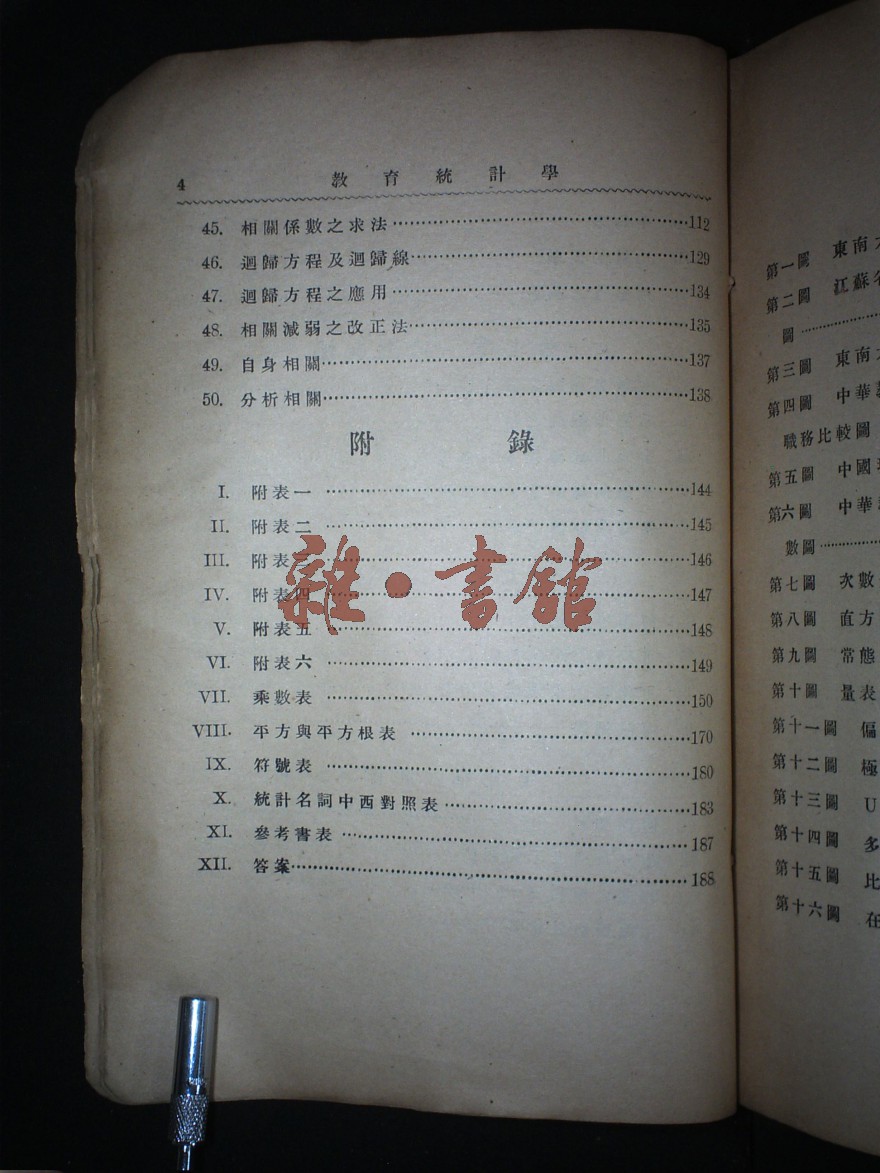 4 教育統計學
45. 相關係數之求法……112
46. 迴歸方程及迴歸線……129
47. 迴歸方程之應用……134
48. 相關減弱之改正法……135
49. 自身相關……137
50. 分析相關……138
附錄
I. 附表一……144
II. 附表二……145
III. 附表三……146
IV. 附表四……147
V. 附表五……148
VI. 附表六……149
VII. 乘數表……150
VIII. 平方與平方根表……170
IX. 符號表……180
X. 統計名詞中西對照表……183
XI. 參考書表……187
XII. 答案……188
雜·書館
第一圖 東南
第二圖 江蘇省
圖……
第三圖 東南
第四圖 中華
職務比較圖
第五圖 中國
第六圖 中華
數圖……
第七圖 次數
第八圖 直方
第九圖 常態
第十圖 量表
第十一圖 偏
第十二圖 極
第十三圖 U
第十四圖 多
第十五圖 比
第十六圖 在